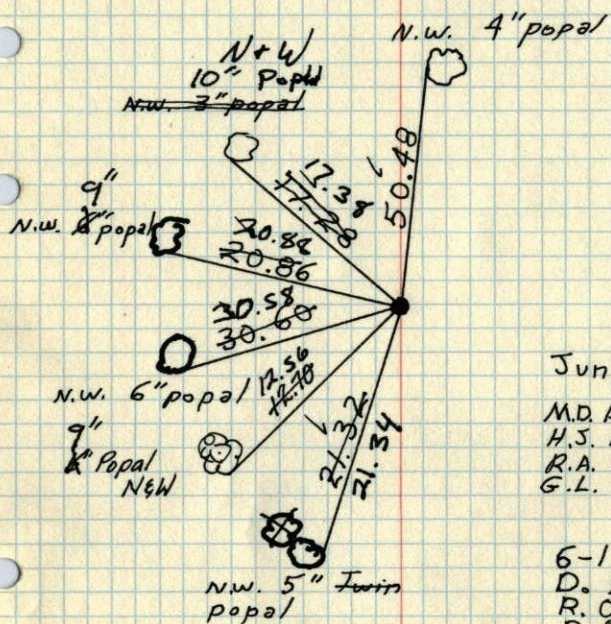 N.W. 4" popal
N & W
10" Popal
N.W. 3" popal
17.38
17.28
50.48
9"
N.W. 6" popal
20.88
20.86
30.58
30.60
N.W. 6" popal
12.56
12.70
9"
6" Popal
N&W
21.32
21.34
N.W. 5" Twin
popal
Jun
M.D.
H.J.
R.A.
G.L.
6-1
D.
R.